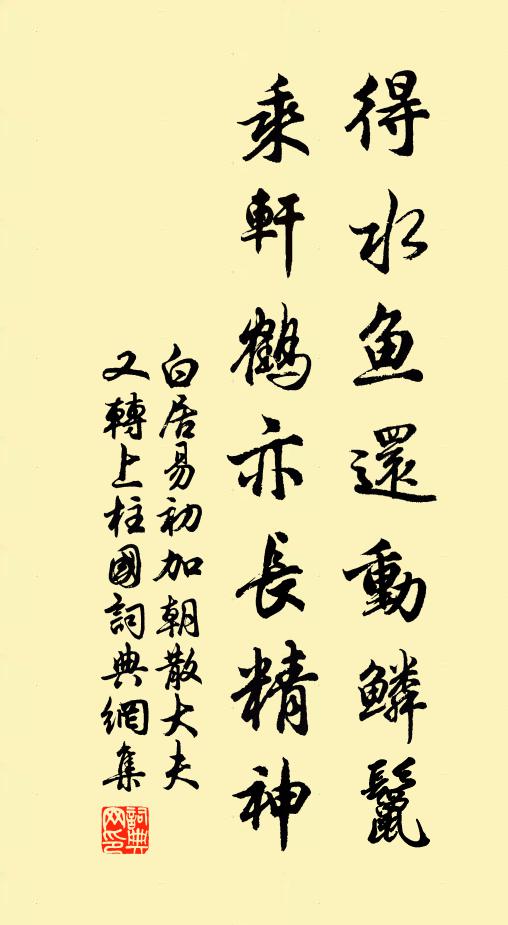 得水鱼還動鱗鬣
乘軒鶴亦長精神
白居易初加朝散大夫
又轉上柱國詞典網集
詞典网印